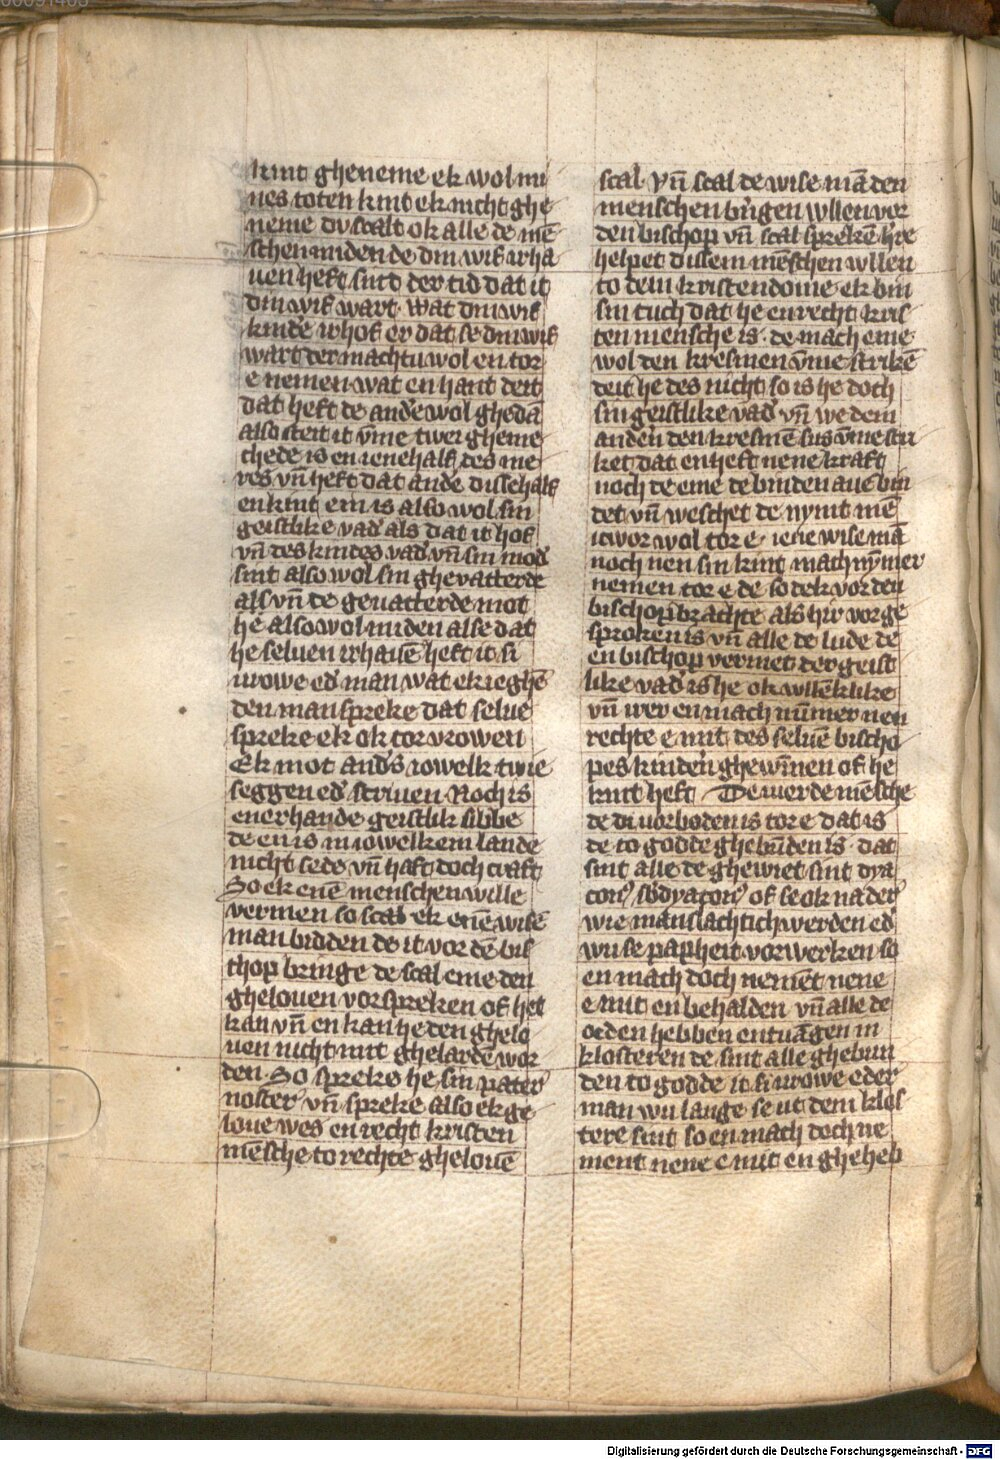 kint gheneme ek wol mi
nes toten kint ek nicht ghe
neme du scalt ok alle de mē
schen miden de din wif irha
uen heft sint der tid dat it
din wif wart. Wat din wif
kinde irhof er dat se din wif
wart der machtu wol en tor
e nemen wat en hant deit
dat heft de and'e wol gheda
also steit it vm̄e twei gheme
chede is en ienehalf des me
res vn̄ heft dat ande dissehalf
en kint em is also wol sin
geistlike vad' als dat it hof
vn̄ des kindes vad' vn̄ sin mod'
sint also wol sin ghevatterde
als vn̄ de geuatterde mot
he also wol miden alse dat
he seluen irhauē heft it si
urowe ed' man wat ek ieghē
den man spreke dat selue
spreke ek ok tor vrowen
Ek mot and's iowelk twie
seggen ed' scriuen Noch is
enerhande geistlik sibbe
de en is in iowelkem lande
nicht sede vn̄ haft doch craft
So ek enē menschen wille
vermen so scal ek enē wisē
man bidden de it vor dē bis
chop bringe de scal eme den
ghelouen vorspreken of het
kan vn̄ en kan he den ghelo
uen nicht mit ghelardē wor
den. So spreke he sin pater
noster vn̄ spreke also ek ge
loue wes en recht kristen
mēsche to rechte ghelouē
scal. vn̄ scal de wise mā den
menschen br̄ngen wllen vor
den bischop vn̄ scal sprekē h're
helpet dissem mēschen wllen
to dem kristendome ek bin
sin tuch dat he en recht kris
ten mensche is. de mach eme
wol den kresmen vm̄e strikē
deit he des nicht so is he doch
sin geistlike vad' vn̄ we dem
anden den kresmē sus vm̄e stri
ket dat en heft nene kraft
noch de eme de binden aue bin
det vn̄ weschet de nymt mē
iewor wol tor e. iene wise mā
noch nen sin kint mach nȳmer
nemen tor e de so dek vor den
bischop brachte als hir vor ge
sproken is vn̄ alle de lude de
en bischop vermet der geist
like vad' is he ok wllēklike
vn̄ wer en mach nūmer nen
rechte e mit des seluē bischo
pes kinden ghewīnen of he
kint heft De uerde mēsche
de di vorboden is tor e dat is
de to godde ghebūden is. dat
sint alle de ghewiet sint dya
con' subdyacon' of se ok nader
wie manslachtich werden ed'
wu se papheit vorwerken so
en mach doch nement nene
e mit en behalden vn̄ alle de
orden hebben entuāgen in
klosteren de sint alle ghebun
den to godde it si urowe eder
man wu lange se ut dem klos
tere sint so en mach doch ne
ment nene e mit en gheheb
Digitalisierung gefördert durch die Deutsche Forschungsgemeinschaft - DFG